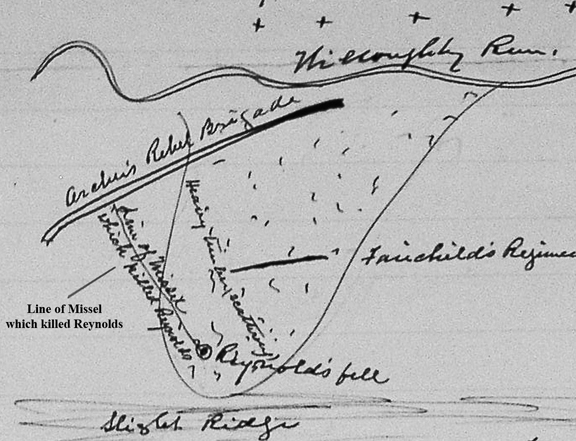 Willoughby Run.
Archer's Rebel Brigade
Heavy timber scattering
Line of Missel
which killed Reynolds
Fairchild's Regimen
Line of Missel
which killed Reynolds
Reynolds fell
Slight Ridge